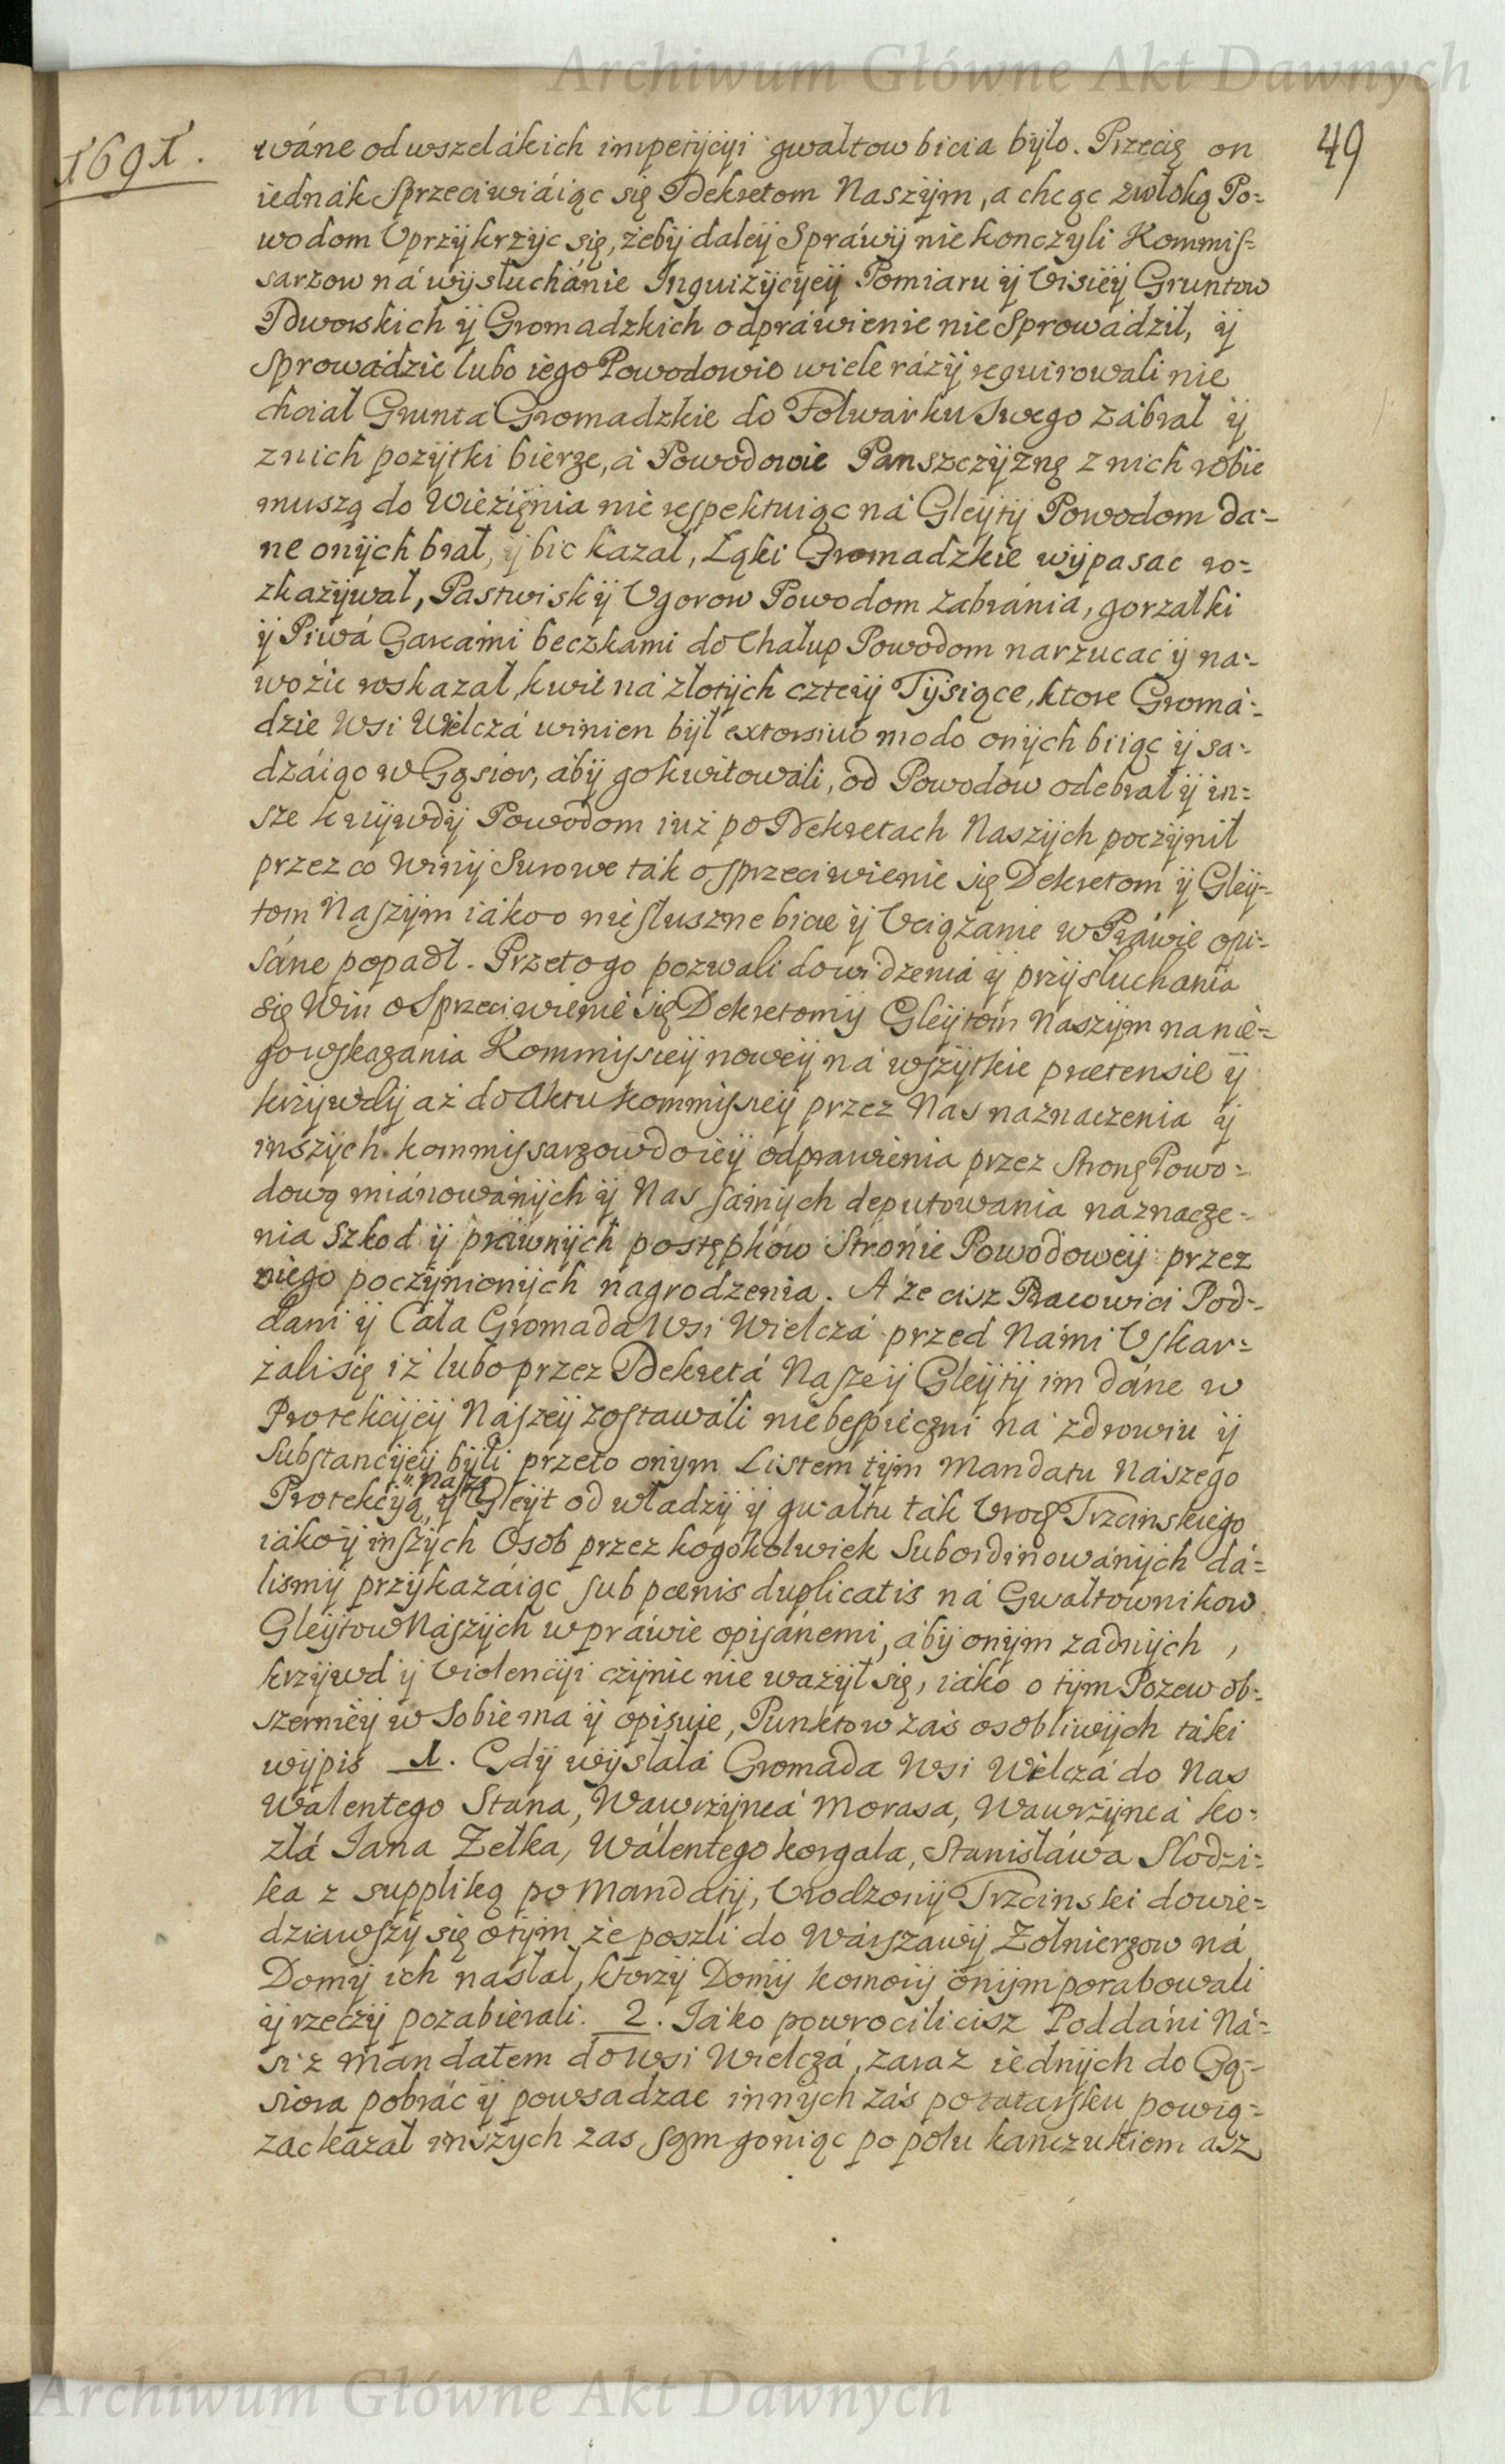 Archiwum Główne Akt Dawnych
1691.
49
wáne od wszelákich impetycyi gwałtow bicia było. Przecię on
iednák Sprzeciwiáiąc się Dekretom Naszym, a chcąc zwłoką Po=
wodom Uprzykrzyc się, żeby daley Spráwy nie konczyli Kommis=
sarzow ná wysłuchánie Inquizycyey Pomiaru y Visiey Gruntow
Dworskich y Gromadzkich odpráwienie nie Sprowádził, y
Sprowádzic lubo iego Powodowie wiele rázy requirowali nie
chciał Grunta Gromadzkie do Folwárku Swego zábrał y
znich pozytki bierze, á Powodowie Panszczyznę z nich robic
muszą do Wiezięnia nie respektuiąc ná Gleyty Powodom da=
ne onych brał, y bic kazał, Łąki Gromadzkie wypasac ro=
zkazywał, Pastwisk y Ugorow Powodom zabránia, gorzałki
y Piwá Garcámi beczkami do Chałup Powodom narzucac y na=
wozic roskazał, kwit ná złotych cztery Tysiące, ktore Gromá=
dzie Wsi Wielczá winien był extorsivo modo onych biiąc y sa=
dzáiąc w Gąsior, aby go kwitowáli, od Powodow odebrał y in=
sze krzywdy Powodom iuż po Dekretach Naszych poczynił
przez co Winy Surowe ták o sprzeciwienie się Dekretom y Gley=
tom Naszym iáko o niesłuszne bicie y Uciążanie w Práwie opi=
sáne popadł. Przeto go pozwali do widzenia y przysłuchania
się Win o Sprzeciwienie się Dekretom y Gleytom Naszym na nie=
go wskazania Kommissiey nowey ná wszytkie pretensie y
krzywdy aż do Aktu Kommissiey przez Nas naznaczenia y
inszych kommissarzow do iey odprawienia przez Stronę Powo=
dową miánowánych y Nas samych deputowania naznacze=
nia Szkod y práwnych postępków Stronie Powodowey przez
niego poczynionych nagrodzenia. A że cisz Pracowici Pod=
dani y Cáła Gromada Wsi Wielczá przed Námi Uskar=
żali się iż lubo przez Dekretá Nasze y Gleyty im dáne w
Protekcyey Nászey zostawáli niebespieczni ná zdrowiu y
Substancyey byli przeto onym Listem tym Mandatu Naszego
Protekcyą Naszą y Gleyt od władzy y gwałtu ták Urodz Trzcinskiego
iáko y inszych Osob przez kogokolwiek Subordinowánych dá=
lismy przykazáiąc sub pœnis duplicatis ná Gwałtownikow
Gleytow Naszych w práwie opisánemi, áby onym zadnych
krzywd y Violencyi czynic nie ważył się, iáko o tym Pozew ob=
szerniey w Sobie ma y opisuie, Punktow zaś osobliwych táki
wypis 1. Gdy wysłałá Gromada Wsi Wielczá do Nas
Walentego Stana, Wawrzyńcá Morasa, Wawrzyńcá Ko=
złá Jana Zełka, Wálentego Korgala, Stanisłáwa Słodzi=
ka z suppliką po Mandaty, Urodzony Trzcinski dowie=
dziawszy się o tym że poszli do Warszawy Żołnierzow ná
Domy ich nasłał, ktorzy Domy komory onym porabowali
y rzeczy pozabierali. 2. Jáko powrocili cisz Poddáni Ná=
si z mandatem do Wsi Wielczá, zaraz iednych do Gą=
siora pobrác y powsadzac innych záś po tatarsku powią=
zac kazał inszych zas sąm goniąc po polu kańczukiem asz
Archiwum Główne Akt Dawnych